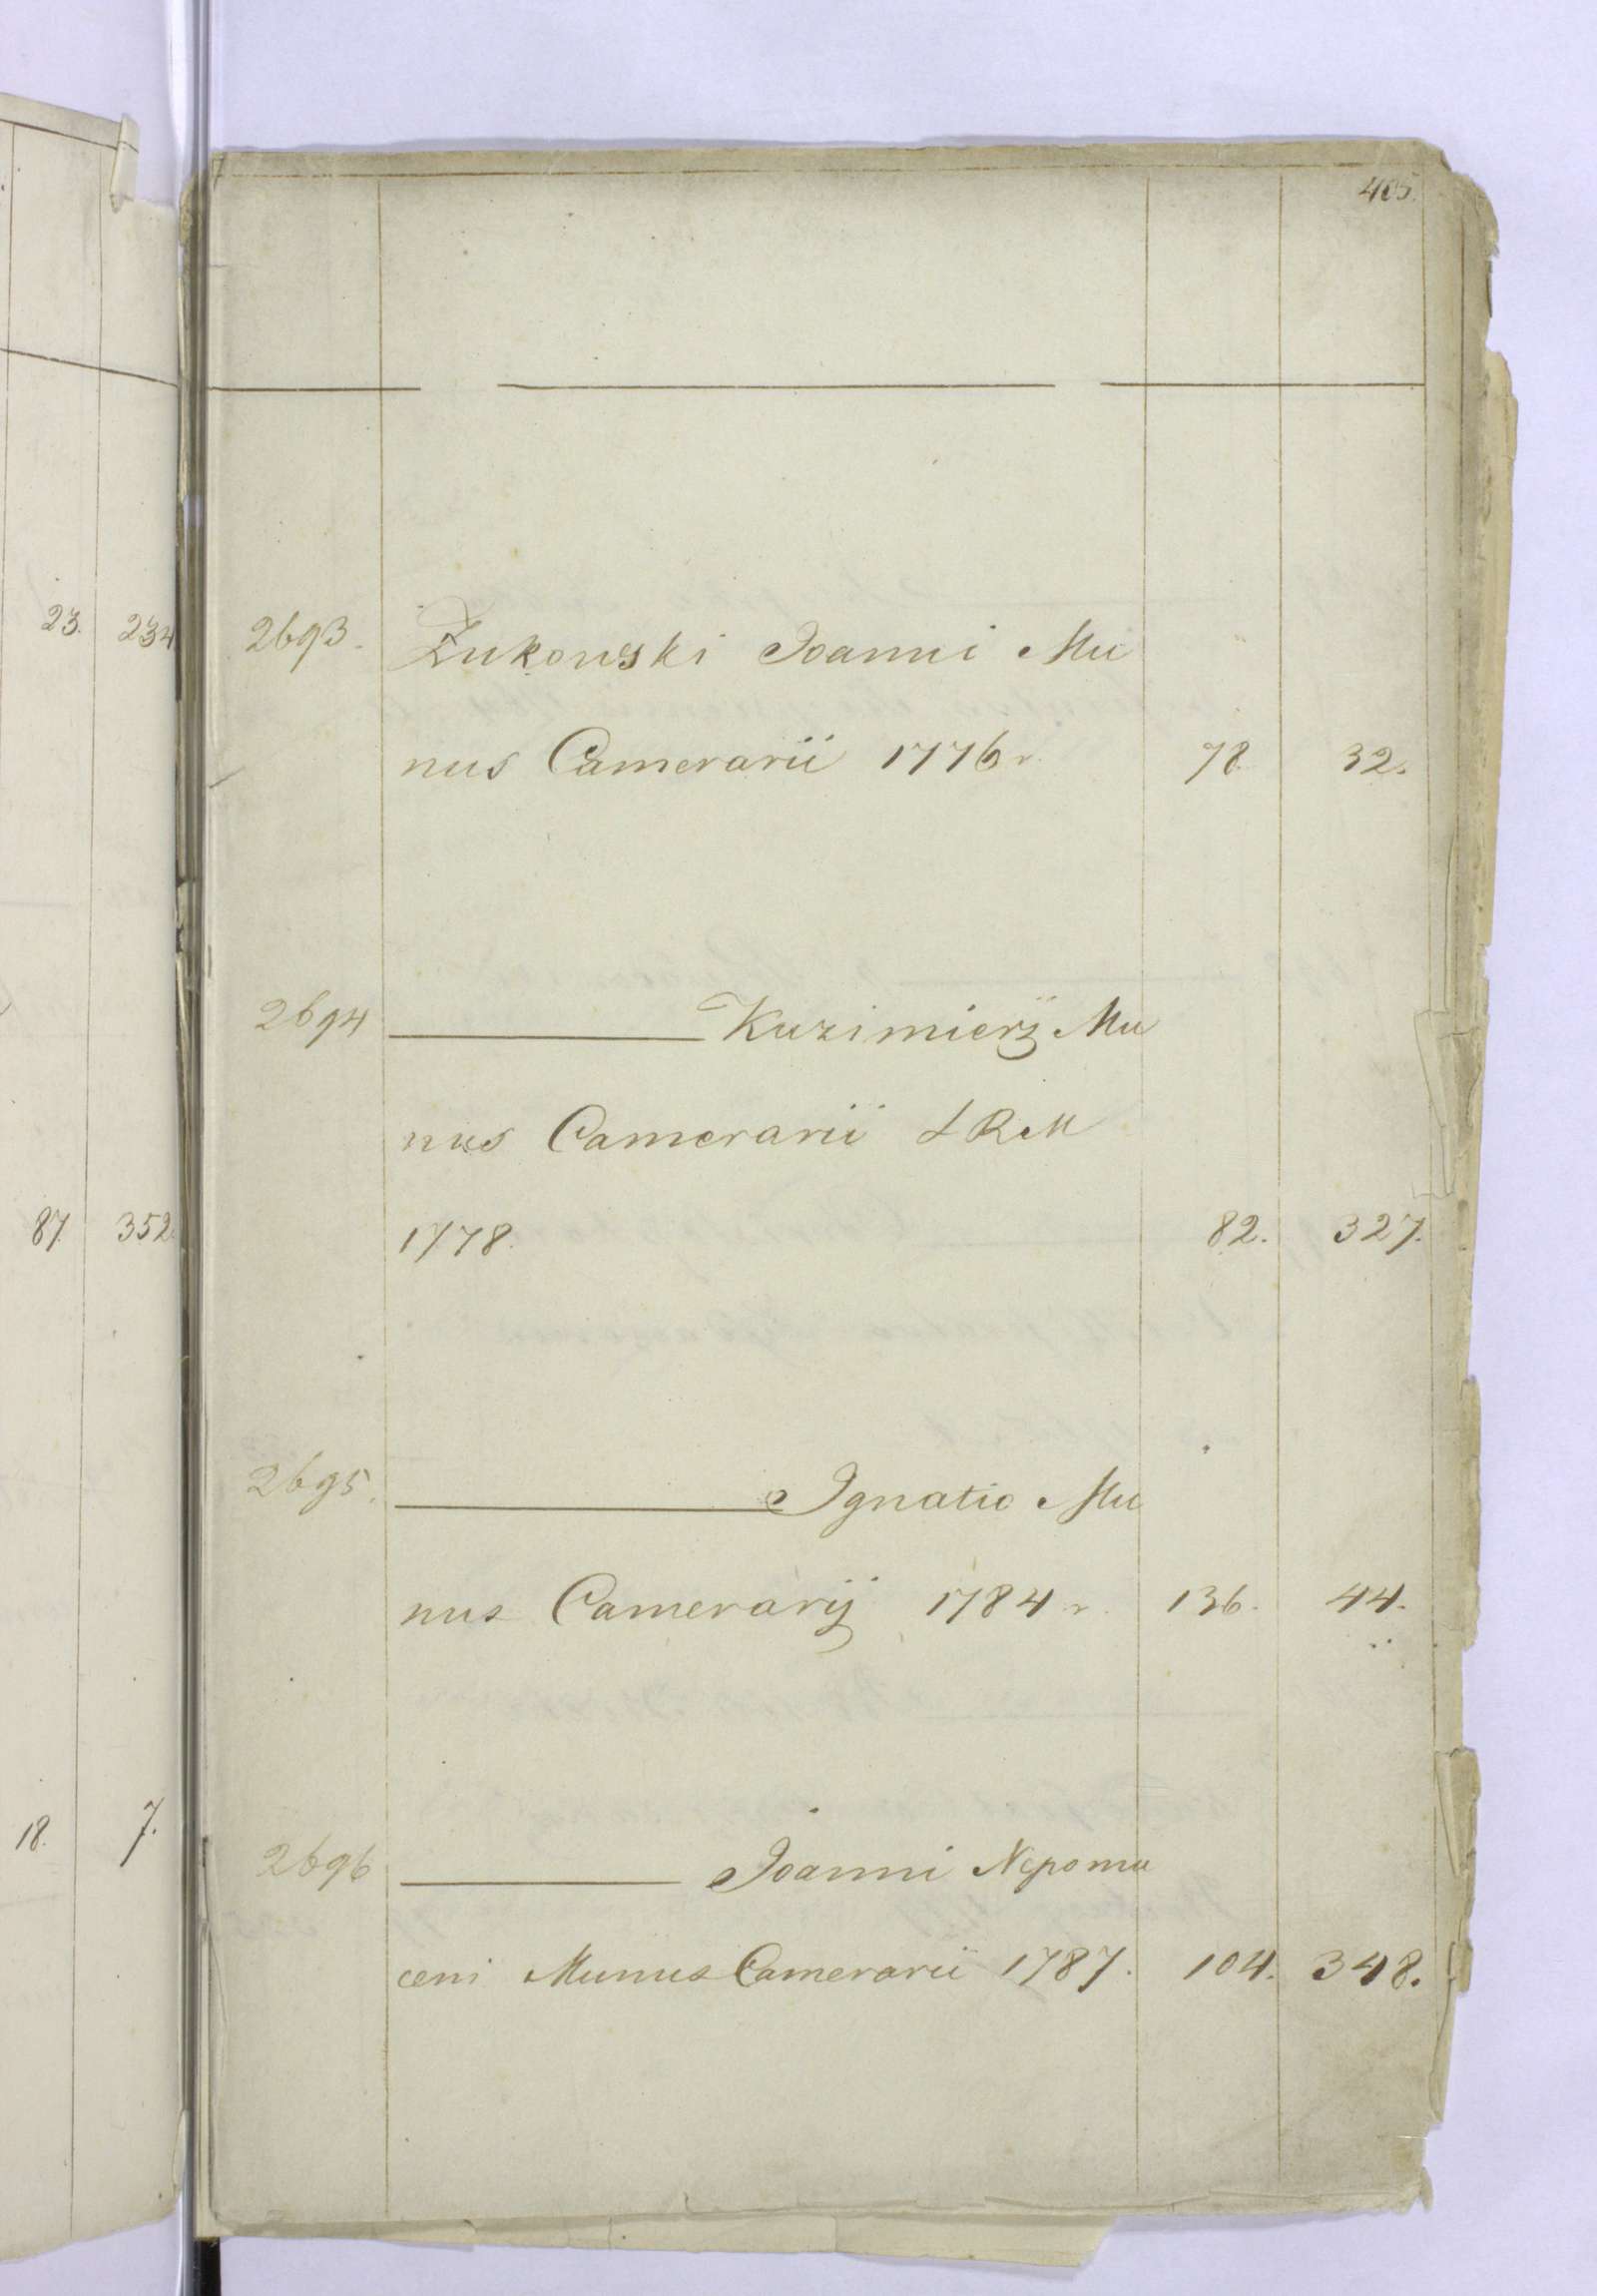 405.
23. 234
2693. Żukowski Joanni Mu
nus Camerarii 1776 r. 78. 32.
2694 Kazimierz Mu
nus Camerarii SRM
87. 352.
1778. 82. 327.
2695. Ignatio Mu
nus Camerarij 1784 r. 136. 44.
18. 7.
2696 Joanni Nepomu
ceni Munus Camerarii 1787. 104. 348.